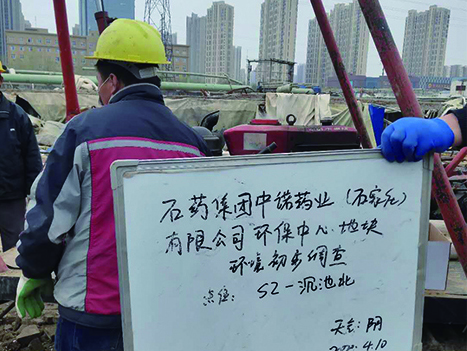 石药集团中诺药业（石家庄）
有限公司环保中心地块
环境初步调查
点位： S2-沉池北
天气：阴
4.10